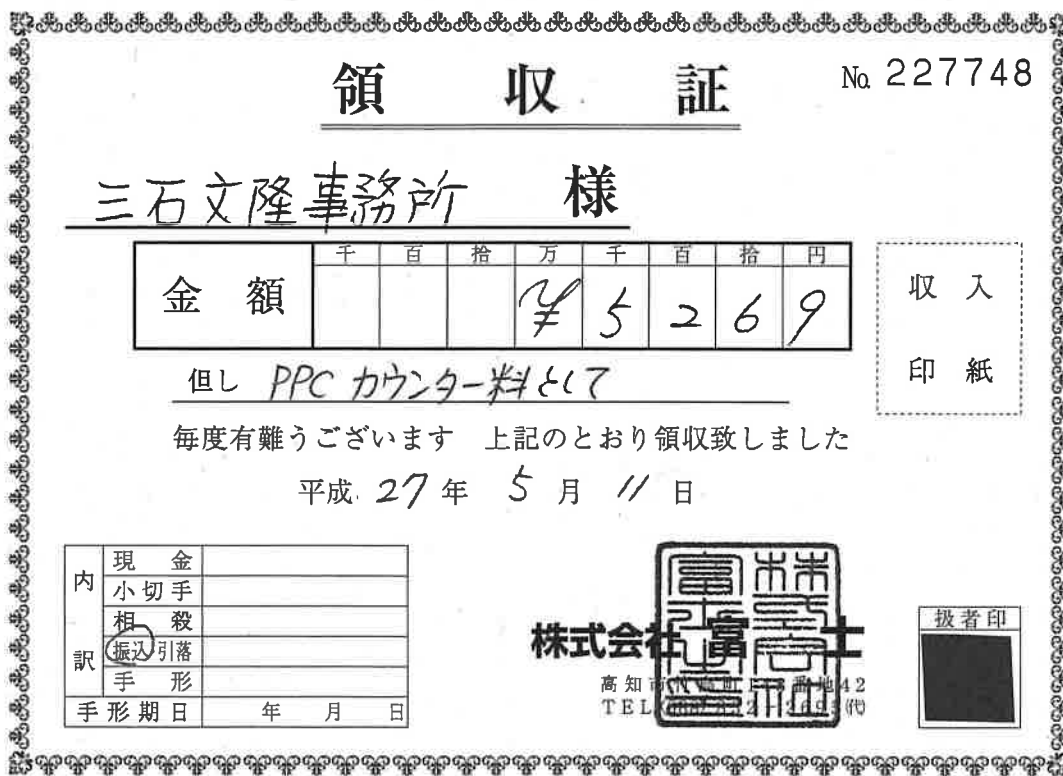 領収証
No. 227748
三石文隆事務所 様
千 百 拾 万 千 百 拾 円
金額 ¥ 5 2 6 9
収入
印紙
但し PPCカウンター料として
毎度有難うございます 上記のとおり領収致しました
平成 27 年 5 月 11 日
内訳
現金
小切手
相殺
振込 引落
手形
手形期日 年 月 日
株式会社 富士
高知市
TEL
扱者印